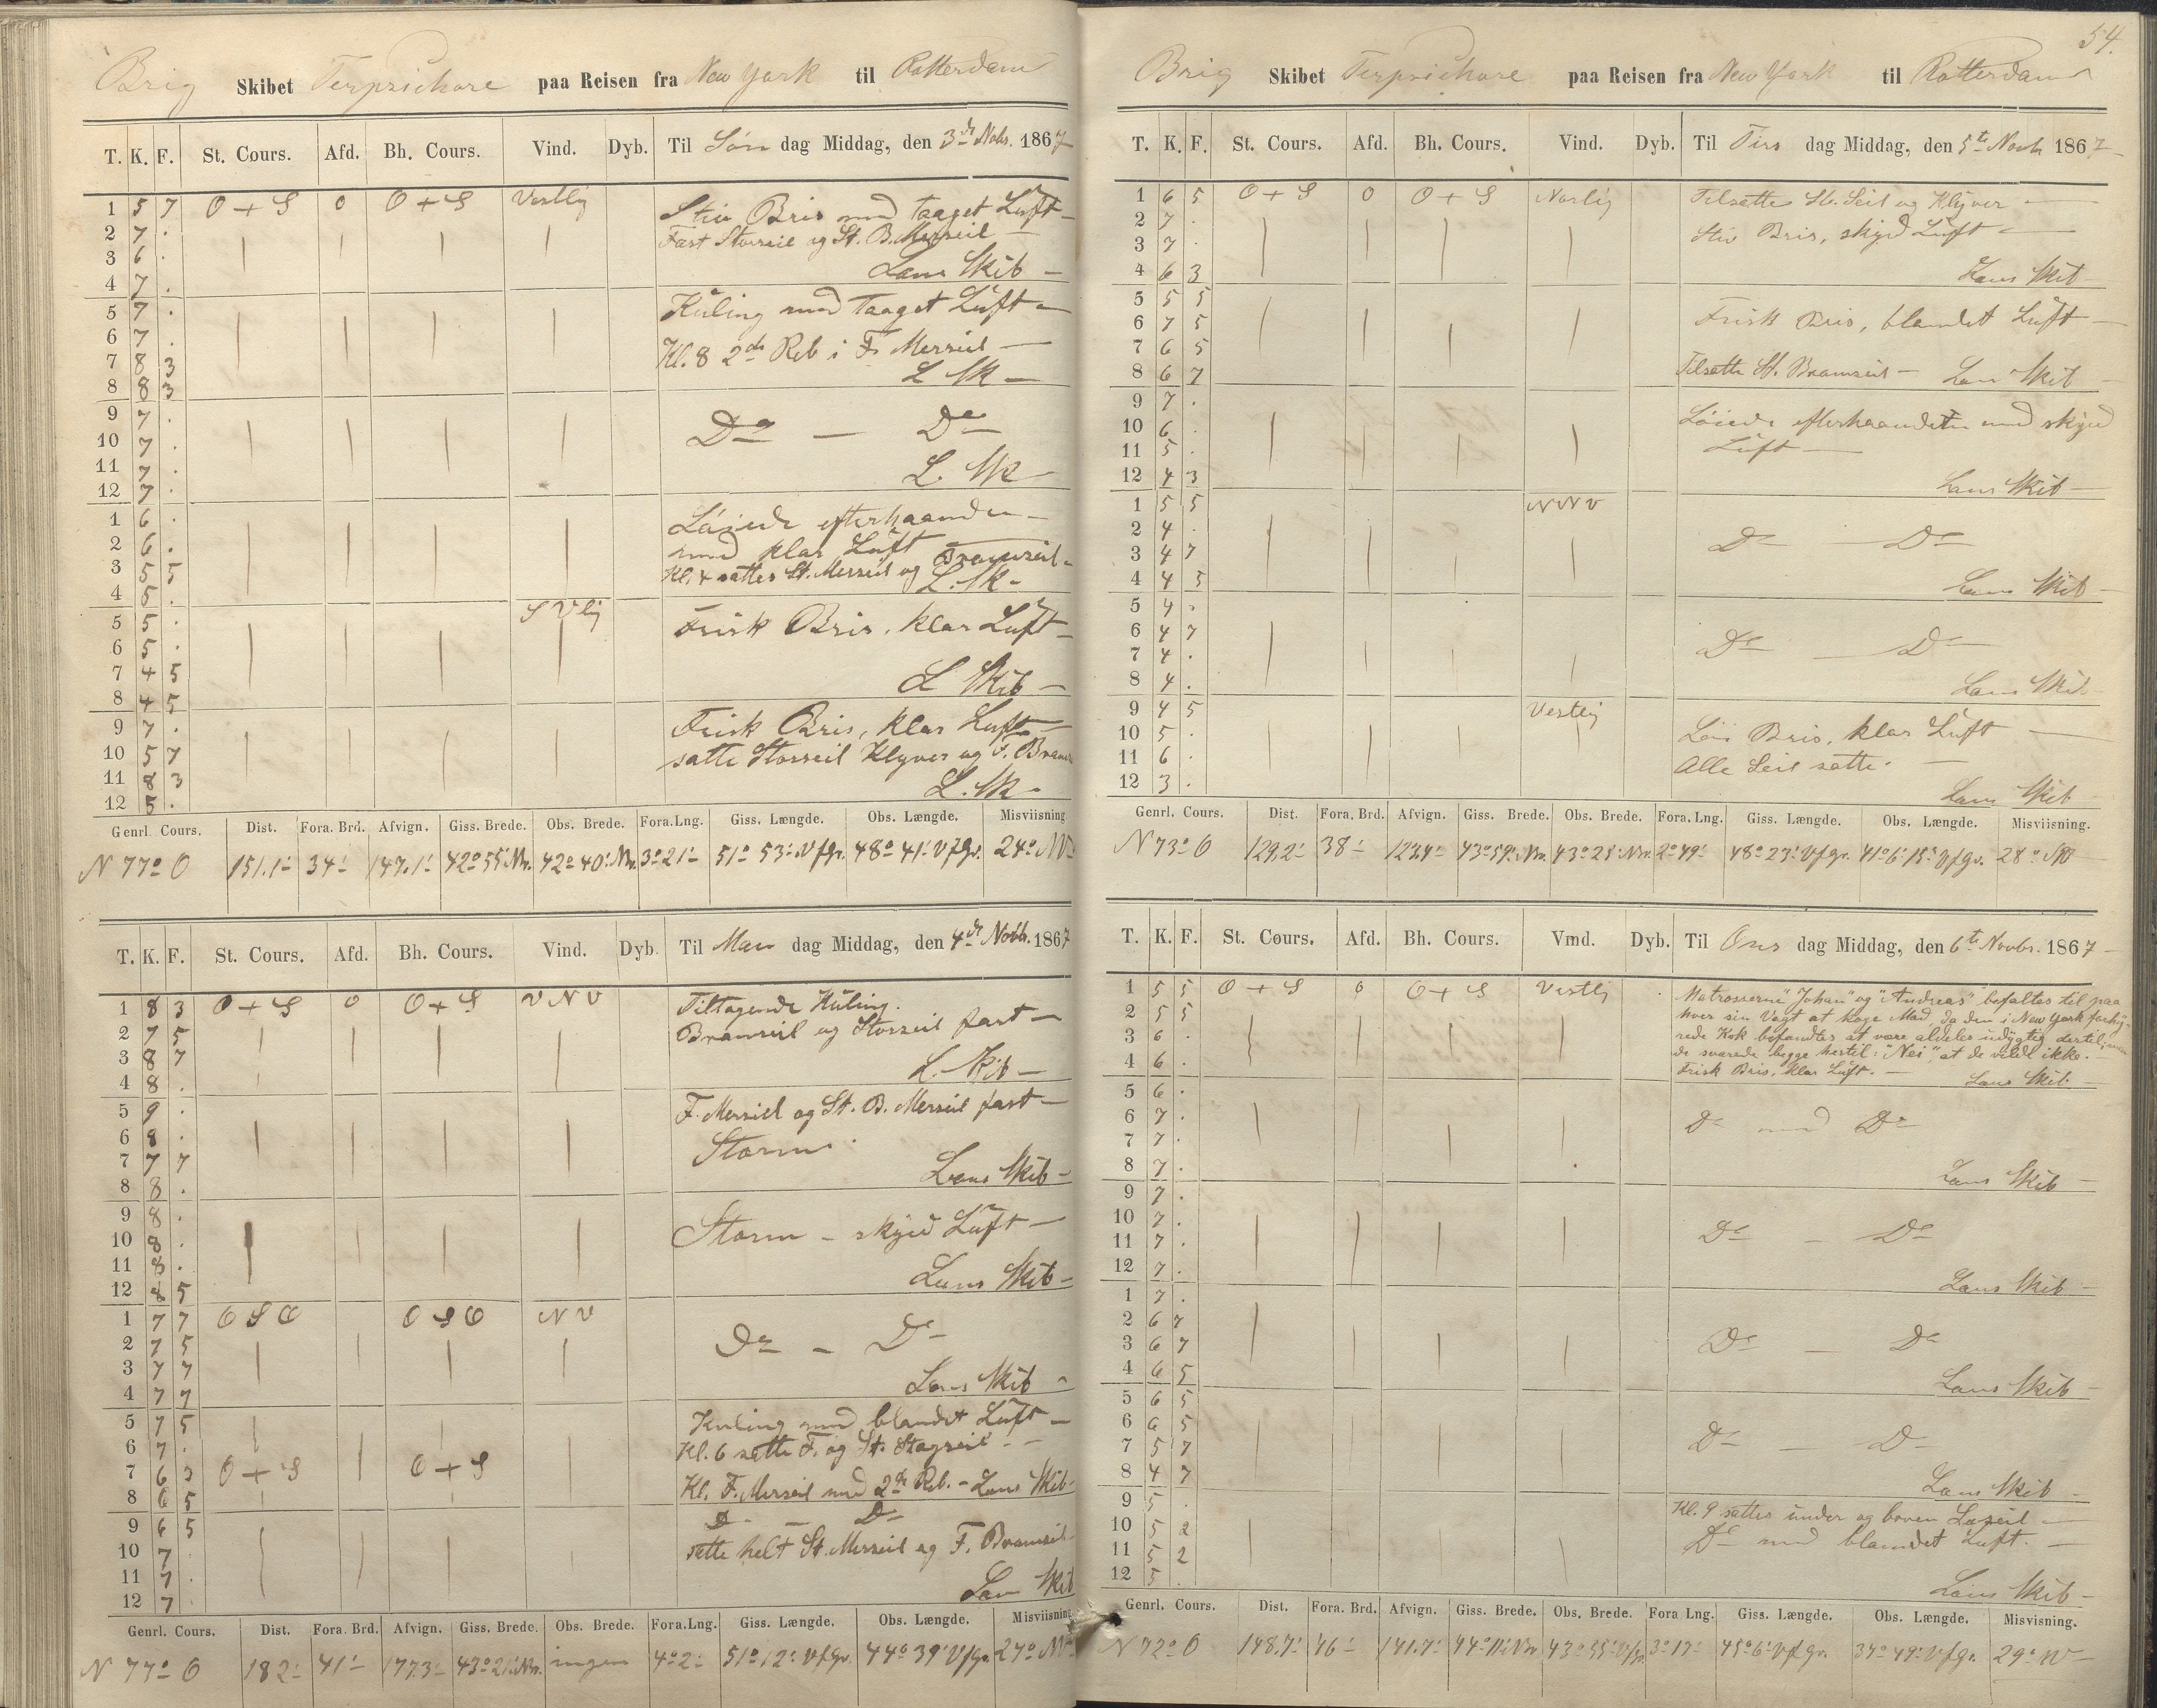 Brig Skibet Terpsichore paa Reisen fra New York til Rotterdam
T. K. F. St. Cours. Afd. Bh. Cours. Vind. Dyb. Til Søn dag Middag, den 3de Nobr. 1867
1 5 7 O + S 0 O + S Vestlig Stiv Bris med taaget Luft
2 7 . Fast Storseil og St. B. Merseil
3 6 .
4 7 . Læns Skib
5 7 . Kuling med taaget Luft
6 7 .
7 8 3 Kl. 8 2de Reb i F. Merseil
8 8 3 L Sk
9 7 .
10 7 . Do — Do
11 7 .
12 7 . L. Sk
1 6 . Løiede efterhaanden
2 6 . med klar Luft
3 5 5 Kl. 4 sattes St. Merseil og Bramseil
4 5 . L. Sk
5 5 . S V lig Frisk Bris, klar Luft
6 5 .
7 4 5
8 4 5 L Skib
9 7 . Frisk Bris, klar Luft
10 5 7 satte Storseil Klyver og F. Bram
11 8 3
12 5 . L. Sk
Genrl. Cours. Dist. Fora. Brd. Afvign. Giss. Brede. Obs. Brede. Fora.Lng. Giss. Længde. Obs. Længde. Misviisning
N 77° O 151.1' 34' 147.1' 42° 55' Nr. 42° 40' Nr. 3° 21' 51° 53' Vfgr. 48° 41' Vfgr. 24° NV
T. K. F. St. Cours. Afd. Bh. Cours. Vind. Dyb. Til Man dag Middag, den 4de Novbr. 1867
1 8 3 O + S 0 O + S V N V Tiltagende Kuling.
2 7 5 Bramseil og Storseil fast
3 8 7
4 8 . L. Skib
5 9 . F. Merseil og St. B. Merseil fast
6 8 .
7 7 7 Storm
8 8 . Læns Skib
9 8 . Storm – skyet Luft
10 8 .
11 8 .
12 8 5 Læns Skib
1 7 7 O S O O S O N V
2 7 5 Do – Do
3 7 7
4 7 7 Læns Skib
5 7 5 Kuling med blandet Luft
6 7 . Kl. 6 satte F. og St. Stagseil
7 6 3 O + S O + S
8 6 5 Kl. F. Merseil med 2de Reb. – Læns Skib
9 6 5 Do — Do
10 7 . satte helt St. Merseil og F. Bramseil
11 7 .
12 7 . Læns Skib
Genrl. Cours. Dist. Fora. Brd. Afvign. Giss. Brede. Obs. Brede. Fora.Lng. Giss. Længde. Obs. Længde. Misviisning
N 77° O 182' 41' 177.3' 43° 21' Nr. ingen 4° 2' 51° 12' Vfgr. 44° 39' Vfgr. 27° NV
54.
Brig Skibet Terpsichore paa Reisen fra New York til Rotterdam
T. K. F. St. Cours. Afd. Bh. Cours. Vind. Dyb. Til Tirs dag Middag, den 5te Novb. 1867
1 6 5 O + S 0 O + S Norlig Tilsatte St. Seil og Klyver
2 7 . Stiv Bris, skyet Luft
3 7 .
4 6 3 Læns Skib
5 5 5
6 7 5 Frisk Bris, blandet Luft
7 6 5
8 6 7 Tilsatte St. Bramseil – Læns Skib
9 7 . Løiede efterhaanden med skyet
10 6 . Luft
11 5 .
12 4 3 Læns Skib
1 5 5 N N V
2 4 . Do — Do
3 4 7
4 4 5 Læns Skib
5 4 .
6 4 7 Do — Do
7 4 .
8 4 . Læns Skib
9 4 5 Vestlig
10 5 . Løi Bris, klar Luft
11 6 . Alle Seil satte.
12 3 . Læns Skib
Genrl. Cours. Dist. Fora. Brd. Afvign. Giss. Brede. Obs. Brede. Fora. Lng. Giss. Længde. Obs. Længde. Misviisning.
N 73° O 129.2' 38' 123.4' 43° 59' Nr. 43° 28' Nr. 2° 49' 48° 23' Vfgr. 41° 6' 15" Vfgr. 28°
T. K. F. St. Cours. Afd. Bh. Cours. Vind. Dyb. Til Ons dag Middag, den 6te Novbr. 1867
1 5 5 O + S 0 O + S Vestlig Matroserne "Johan" og "Andreas" befaltes til paa
2 5 5 hver sin Vagt at koge Mad, da den i New York forhy-
3 6 . rede Kok befandtes at være aldeles udygtig dertil, men
4 6 . de svarede begge hertil: "Nei", at de vilde ikke.
Frisk Bris, klar Luft. — Læns Skib
5 6 .
6 7 . Do med Do
7 7 .
8 7 . Læns Skib
9 7 .
10 7 . Do — Do
11 7 .
12 7 . Læns Skib
1 7 .
2 6 7
3 6 7 Do — Do
4 6 5 Læns Skib
5 6 5
6 6 5
7 5 7 Do — Do
8 4 7 Læns Skib
9 5 . Kl. 9 sattes under og boven Læseil
10 5 2 Do med blandet Luft.
11 5 2
12 5 . Læns Skib
Genrl. Cours. Dist. Fora. Brd. Afvign. Giss. Brede. Obs. Brede. Fora Lng. Giss. Længde. Obs. Længde. Misvisning.
N 72° O 148.7' 46' 141.7' 44° 11' Nr 43° 55' 3° 17' 45° 6' Vfgr. 37° 49' Vfgr. 29° W